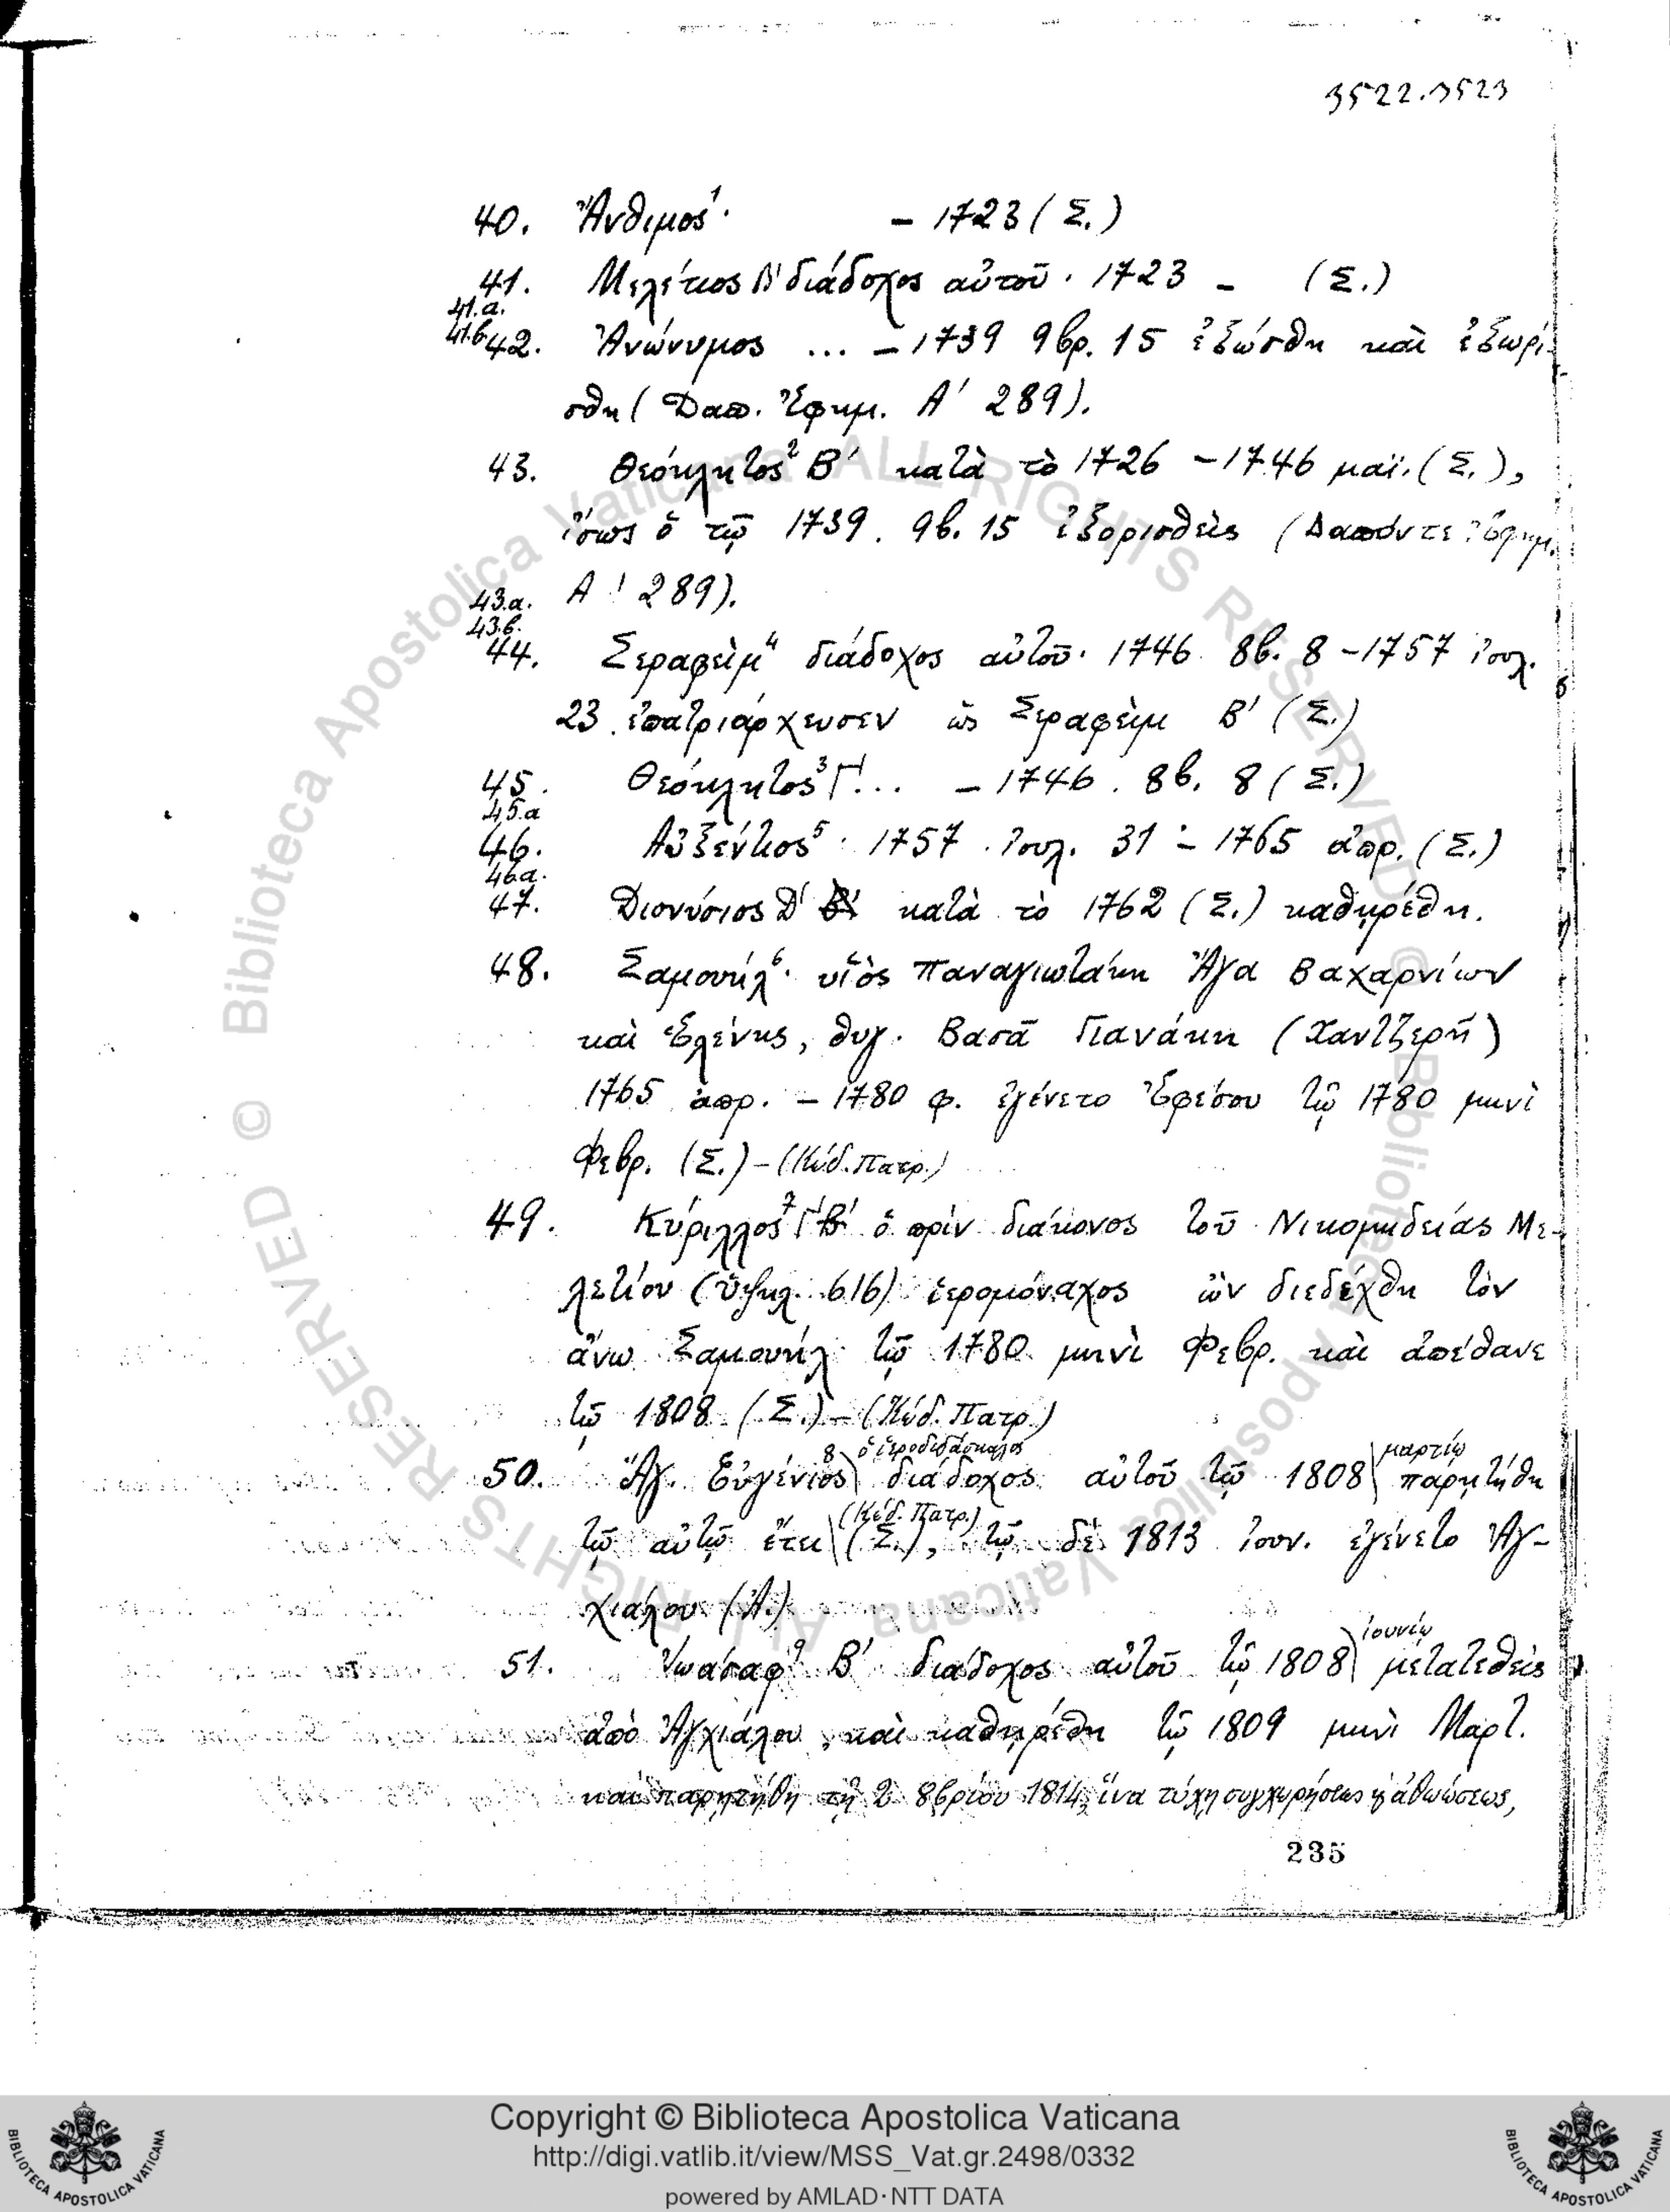 3522.3523
40. Ἄνθιμος¹· – 1723 (Σ.)
41. Μελέτιος Β' διάδοχος αὐτοῦ· 1723 – (Σ.)
41.α.
41.β
42. Ἀνώνυμος ... – 1739 9βρ. 15 ἐξώσθη καὶ ἐξωρί-
σθη (Δαπ. Ἐφημ. Α' 289).
43. Θεόκλητος² Β' κατὰ τὸ 1726 – 1746 μαϊ. (Σ.),
ἴσως ὁ τῷ 1739. 9β. 15 ἐξορισθεὶς (Δαπόντε Ἐφημ.
Α' 289).
43.α.
43.β.
44. Σεραφεὶμ⁴ διάδοχος αὐτοῦ· 1746 8β. 8 – 1757 Ἰουλ.
23 ἐπατριάρχευσεν ὡς Σεραφεὶμ Β' (Σ.)
45. Θεόκλητος³ Γ'... – 1746. 8β. 8 (Σ.)
45.α
46. Αὐξέντιος⁵· 1757. Ἰουλ. 31 – 1765 ἀπρ. (Σ.)
46α.
47. Διονύσιος Δ' Β' κατὰ τὸ 1762 (Σ.) καθῃρέθη.
48. Σαμουὴλ⁶· υἱὸς Παναγιωτάκη Ἄγα Βαχαρνίων
καὶ Ἑλένης, θυγ. Βασᾶ Γιανάκη (Χαντζερῆ)
1765 ἀπρ. – 1780 φ. ἐγένετο Ἐφέσου τῷ 1780 μηνὶ
Φεβρ. (Σ.) – (Κώδ. Πατρ.)
49. Κύριλλος⁷ Γ' Β' ὁ πρὶν διάκονος τοῦ Νικομηδείας Με-
λετίου (Ὑψηλ. 616) ἱερομόναχος ὢν διεδέχθη τὸν
ἄνω Σαμουὴλ τῷ 1780 μηνὶ Φεβρ. καὶ ἀπέθανε
τῷ 1808 (Σ.) – (Κώδ. Πατρ.)
50. Ἀγ. Εὐγένιος⁸ ὁ ἱεροδιδάσκαλος διάδοχος αὐτοῦ τῷ 1808 μαρτίῳ παρῃτήθη
τῷ αὐτῷ ἔτει (Κώδ. Πατρ.) (Σ.), τῷ δὲ 1813 Ἰουν. ἐγένετο Ἀγ-
χιάλου (Ἀ.)
51. Ἰωάσαφ⁹ Β' διάδοχος αὐτοῦ τῷ 1808 ἰουνίῳ μετατεθεὶς
ἀπὸ Ἀγχιάλου, καὶ καθῃρέθη τῷ 1809 μηνὶ Μαρτ.
καὶ παρῃτήθη τῇ 2 8βρίου 1814, ἵνα τύχῃ συγχωρήσεως ϗ ἀθωώσεως,
235
© Biblioteca Apostolica Vaticana ALL RIGHTS RESERVED © Biblioteca Apostolica Vaticana ALL RIGHTS RESERVED
BIBLIOTECA APOSTOLICA VATICANA
Copyright © Biblioteca Apostolica Vaticana
http://digi.vatlib.it/view/MSS_Vat.gr.2498/0332
powered by AMLAD·NTT DATA
BIBLIOTECA APOSTOLICA VATICANA